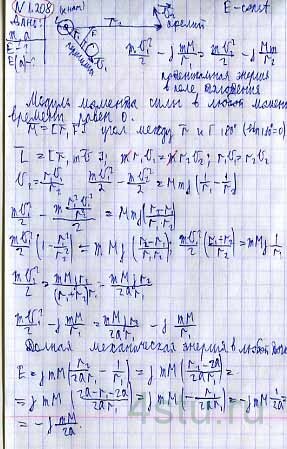 N 1.208
E - const
Дано:
m, a
E - ?
\frac{mv_1^2}{2} - γ\frac{mM}{r_1} = \frac{mv_2^2}{2} - γ\frac{Mm}{r_2}
потенциальная энергия
в поле тяготения
Модуль момента силы в любой момент
времени равен 0.
M = [r, F] угол между r и F 180° (sin 180° = 0)
L = [r, mv]; m r_1 v_1 = m r_2 v_2; r_1 v_1 = r_2 v_2
v_2 = \frac{r_1 v_1}{r_2} \frac{mv_1^2}{2} - \frac{mv_2^2}{2} = Mmγ(\frac{1}{r_1} - \frac{1}{r_2})
\frac{mv_1^2}{2} - m\frac{r_1^2 v_1^2}{r_2^2 2} = Mmγ(\frac{r_2 - r_1}{r_1 r_2})
\frac{mv_1^2}{2}(1 - \frac{r_1^2}{r_2^2}) = mMγ(\frac{r_2 - r_1}{r_1 r_2}); \frac{mv_1^2}{2}(\frac{r_1 + r_2}{r_2}) = mMγ\frac{1}{r_1}
\frac{mv_1^2}{2} = \frac{mMγr_2}{(r_1 + r_2)r_1} = \frac{mMγr_2}{2ar_1}
\frac{mv_1^2}{2} - γ\frac{mM}{r_1} = \frac{mMγr_2}{2ar_1} - γ\frac{mM}{r_1}
Полная механическая энергия в любой точке
E = γmM(\frac{r_2}{2ar_1} - \frac{1}{r_1}) = γmM(\frac{r_2 - 2a}{2ar_1}) =
= γmM(\frac{2a - r_1 - 2a}{2ar_1}) = γmM(-\frac{r_1}{2ar_1}) = -γmM\frac{1}{2a} =
= -γ\frac{mM}{2a}
4stu.ru